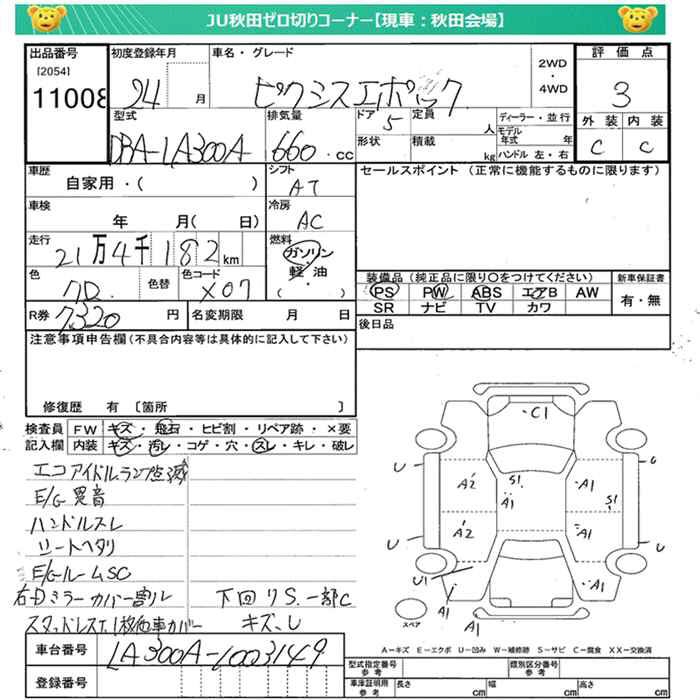 JU秋田ゼロ切りコーナー【現車：秋田会場】
出品番号
[2054]
11008
初度登録年月
24 月
車名・グレード
ピクシスエポック
2WD
・
4WD
評価点
3
外装 内装
C C
型式
DBA-LA300A
排気量
660 .cc
ドア
5
定員
人
形状
積載
kg
ディーラー・並行
モデル年式 年
ハンドル 左・右
車歴
自家用・( )
シフト
AT
セールスポイント (正常に機能するものに限ります)
車検
年 月( 日)
冷房
AC
走行
21万4千182km
燃料
ガソリン
・
軽油
・
( )
色
色替
色コード
X07
装備品(純正品に限り○をつけてください)
PS PW ABS エアB AW
SR ナビ TV カワ
新車保証書
有・無
R券 7320 円
名変期限 月 日
後日品
注意事項申告欄(不具合内容等は具体的に記入して下さい)
修復歴 有 [箇所 ]
検査員記入欄
FW キズ・飛石・ヒビ割・リペア跡・×要
内装 キズ・汚レ・コゲ・穴・スレ・キレ・破レ
エコアイドルランプ点滅
E/G異音
ハンドルスレ
シートヘタリ
E/GルームSC
右Dミラーカバー割レ
下回りS.一部C
キズ.U
車台番号 LA300A-1003149
登録番号
C1
U A2 S1 A1 A1 U
S1
U A2 A1 U
U1 A1 A1 A1
スペア
A＝キズ E＝エクボ U＝凹み W＝補修跡 S＝サビ C＝腐食 XX＝交換済
型式指定番号
参考
類別区分番号
参考
車庫証明用
参考
長さ cm 幅 cm 高さ cm